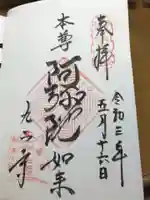 奉拝
令和三年
五月十六日
本尊
阿弥陀如来